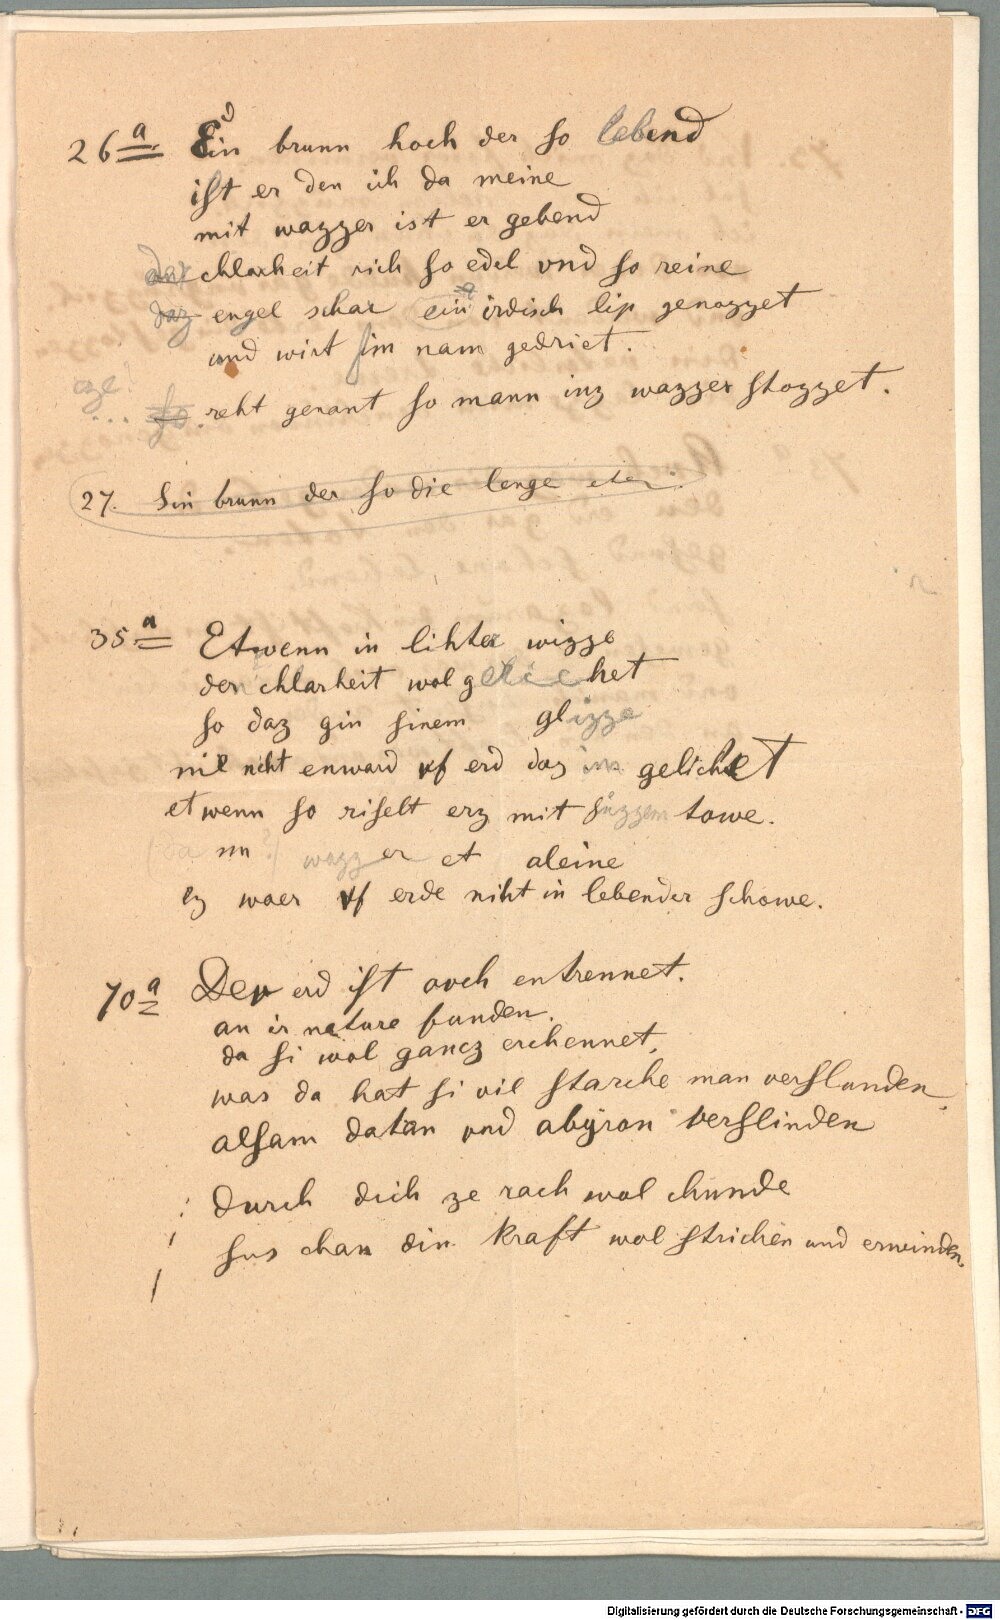 26a. Ein brunn hoch der so lebend
ist er den ich da meine
mit wazzer ist er gebend
der chlarheit rich so edel vnd so reine
daz engel schar ein irdisch lip genozzet
und wirt sin nam gedriet.
... so reht genant so mann inz wazzer stozzet.
27. Sin brunn der so die lenge etc.
35a Etwenn in lihter wizze
der chlarheit wol gleichet
so daz gin sinem glizze
nie niht enward vf erd daz im gelichet
etwenn so riselt erz mit süzzem towe.
nn wazzer et aleine
ez waer vf erde niht in lebender schowe.
70a Der erd ist ovch entrennet.
an ir nature funden.
da si wol gancz erchennet,
was da hat si vil starche man verslunden,
alsam datan vnd abyron verslinden
durch dich ze rach wol chunde
sus chan din kraft wol strichen und erwinden.
Digitalisierung gefördert durch die Deutsche Forschungsgemeinschaft - DFG